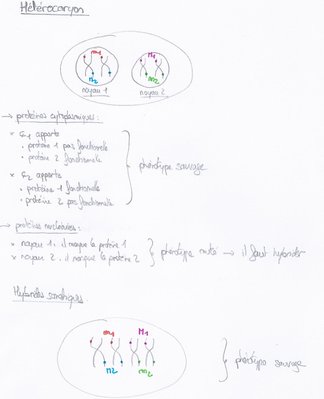 Hétérocaryon
m1 M1
m2 m2
noyau 1 noyau 2
→ protéines cytoplasmiques :
x C1 apporte
• protéine 1 pas fonctionnelle
• protéine 2 fonctionnelle
x C2 apporte
• protéine 1 fonctionnelle
• protéine 2 pas fonctionnelle
phénotype sauvage
→ protéines nucléaires :
x noyau 1 : il manque la protéine 1
x noyau 2 : il manque la protéine 2
phénotype muté → il faut hybrider
Hybrides somatiques
m1 M1
m2 m2
phénotype sauvage